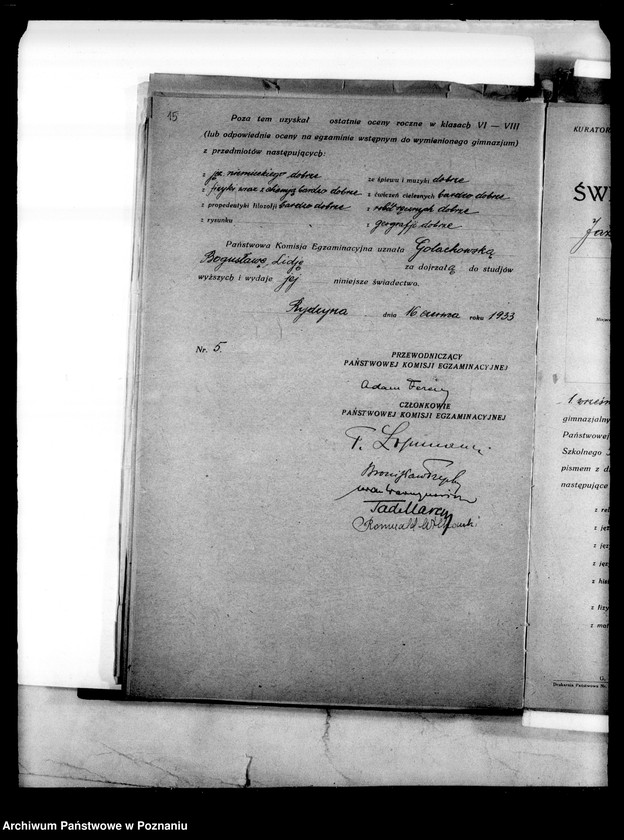 15
Poza tem uzyskał ostatnie oceny roczne w klasach VI — VIII
(lub odpowiednie oceny na egzaminie wstępnym do wymienionego gimnazjum)
z przedmiotów następujących:
z jęz. niemieckiego dobre
ze śpiewu i muzyki dobre
z fizyki wraz z chemją bardzo dobre
z ćwiczeń cielesnych bardzo dobre
z propedeutyki filozofji bardzo dobre
z robót ręcznych dobre
z rysunku
z geografji dobre
Państwowa Komisja Egzaminacyjna uznała Golachowską
Bogusławę Lidję za dojrzałą do studjów
wyższych i wydaje jej niniejsze świadectwo.
Rydzyna dnia 16 czerwca roku 1933
Nr. 5.
PRZEWODNICZĄCY
PAŃSTWOWEJ KOMISJI EGZAMINACYJNEJ
Adam
CZŁONKOWIE
PAŃSTWOWEJ KOMISJI EGZAMINACYJNEJ
Bronisław
Romuald
KURATOR
ŚWI
1 wrześn
gimnazjalny
Państwowej
Szkolnego
pismem z d
następujące
z rel
z ję
z ję
z ję
z his
z fizy
z mat
Drukarnia Państwowa Nr.
Archiwum Państwowe w Poznaniu